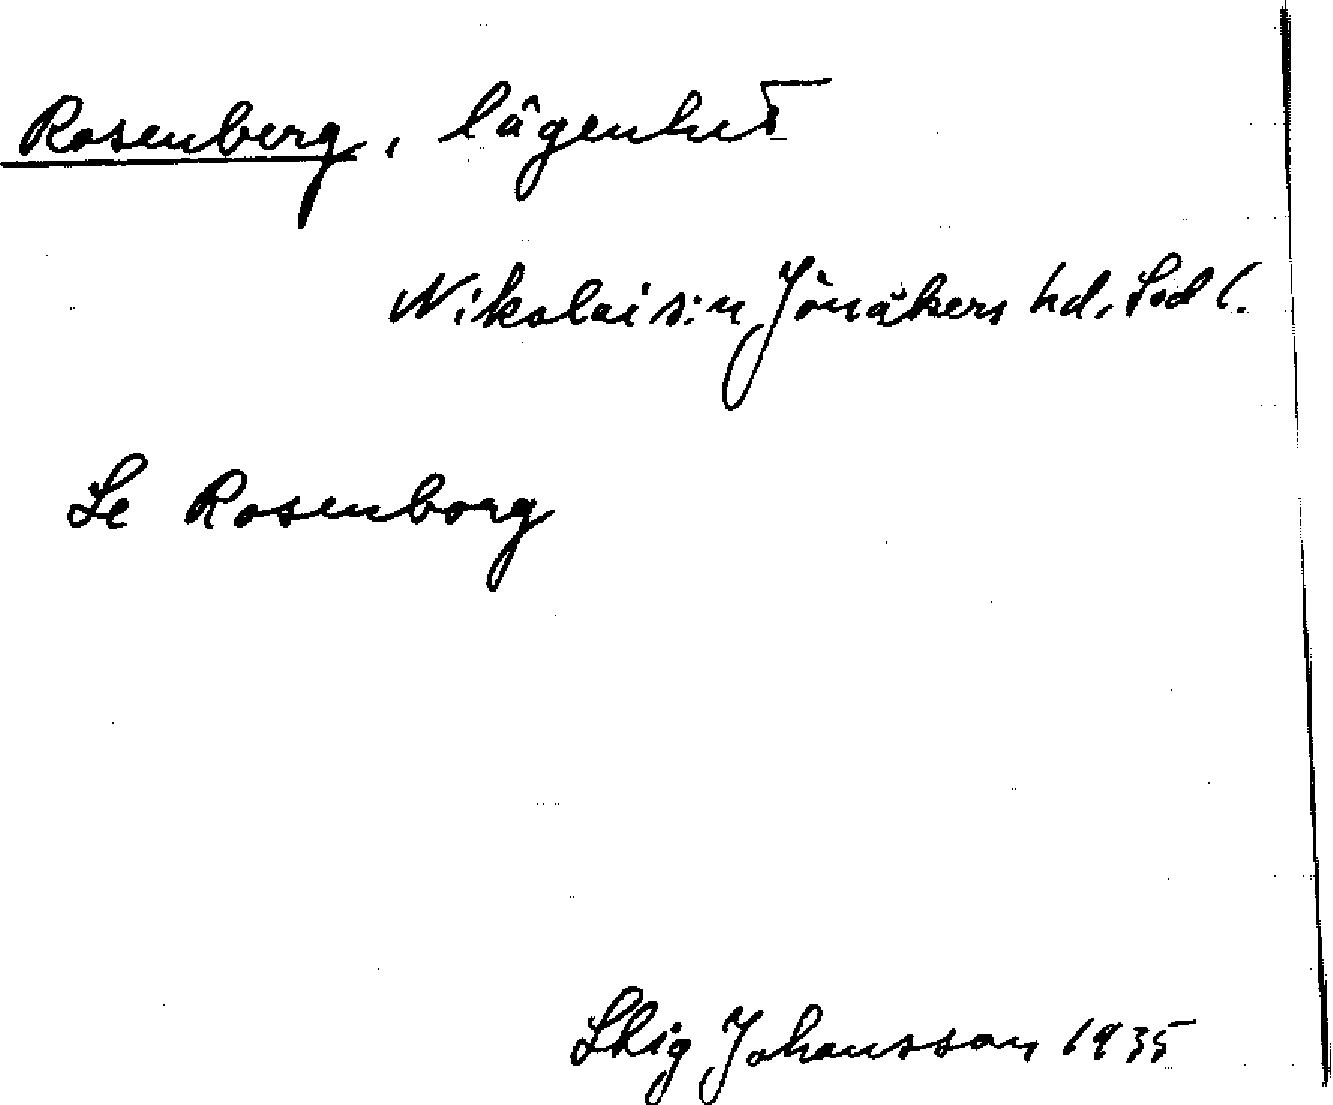 Rosenberg, lägenhet
Nikolai s:n Jönåkers hd, Södl.
Se Rosenborg
Stig Johansson 1935